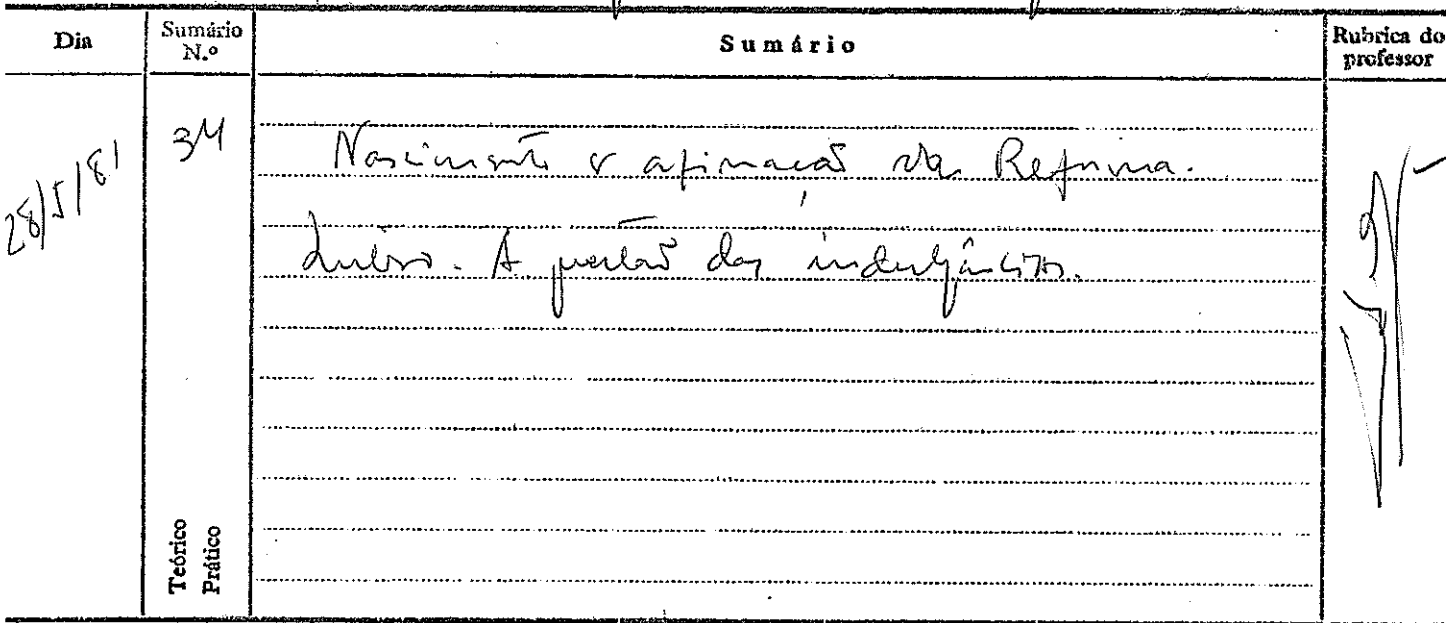 Dia
Sumário N.º
Sumário
Rubrica do professor
28/5/81
34
Nascimento e afirmação da Reforma.
Lutero. A questão das indulgências.
Teórico
Prático